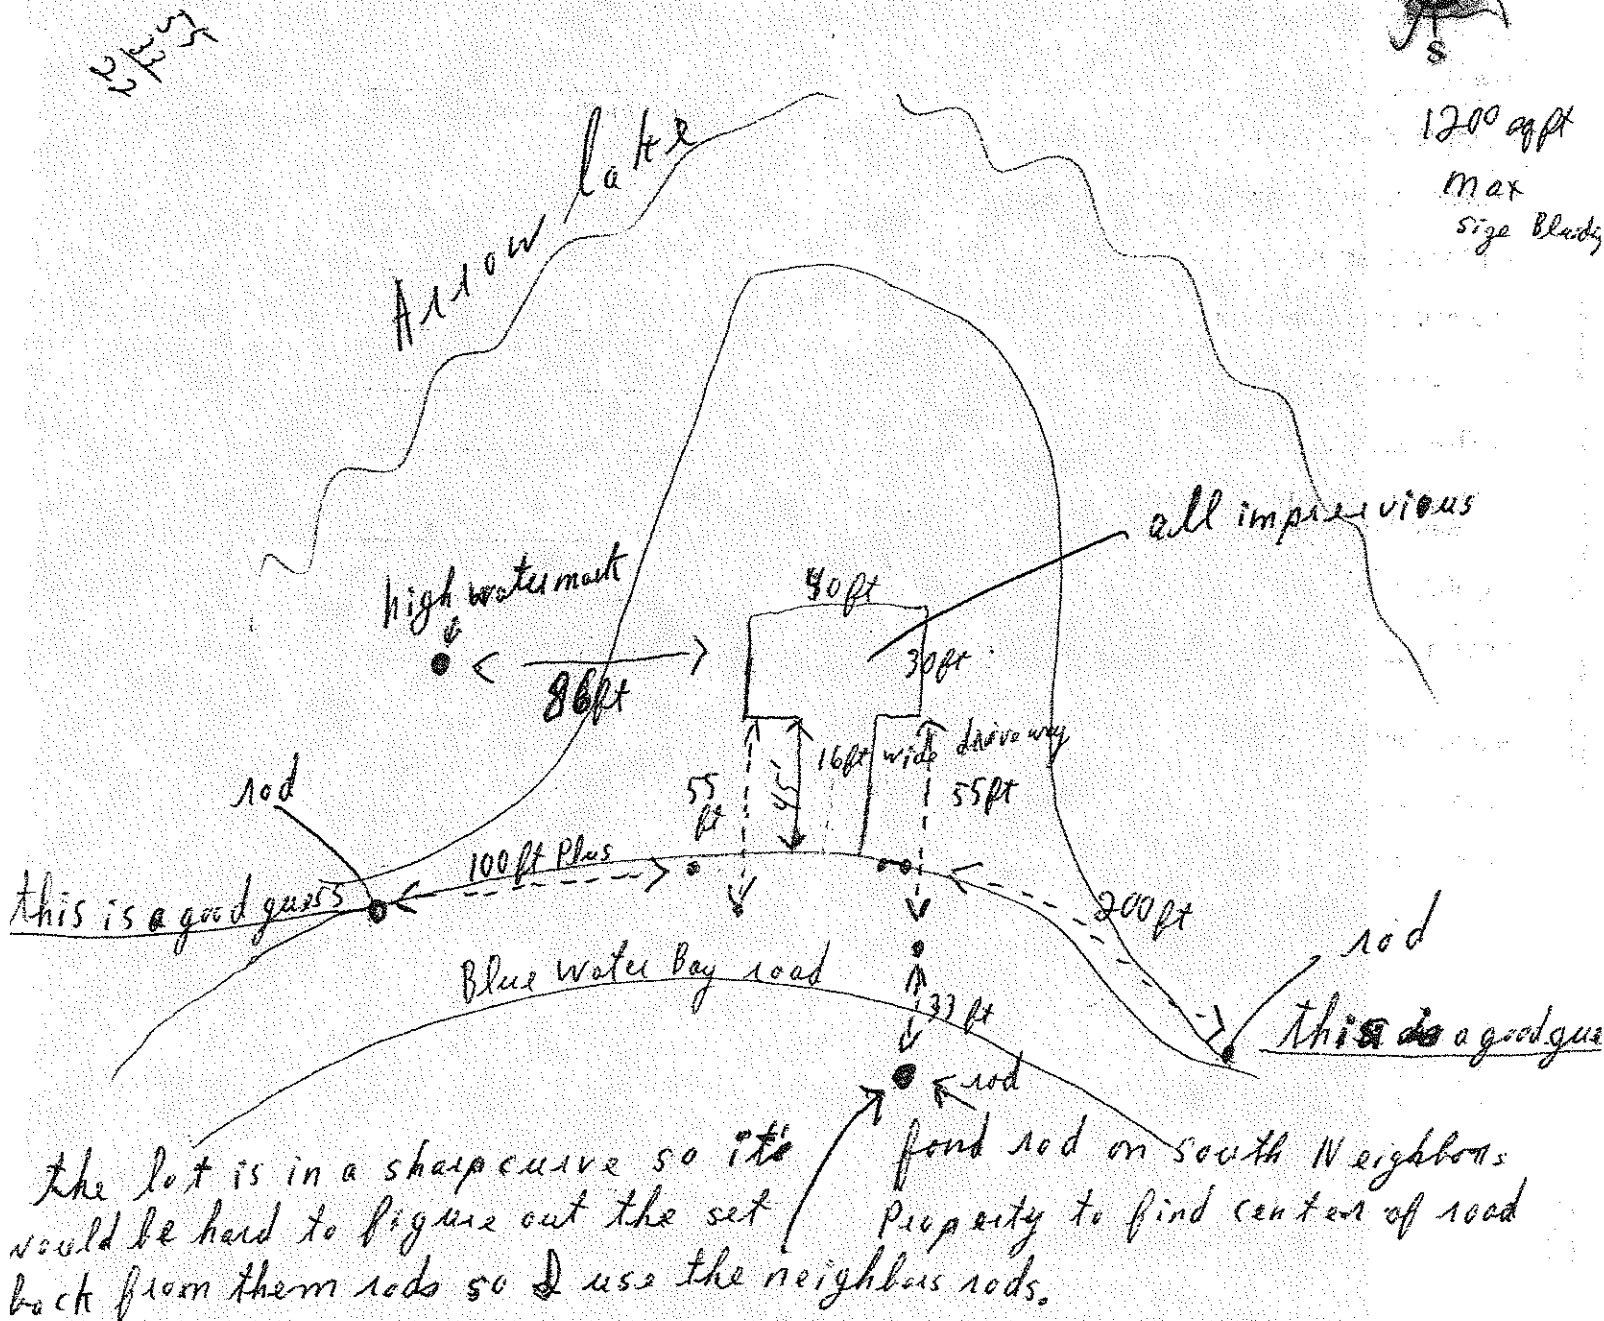 55
33
22
S
1200 sqft
max
size
Arrow lake
all impreevious
high water mark
40ft
30ft
86ft
16ft wide driveway
55
ft
45'
55ft
rod
100ft Plus
this is a good guess
200ft
rod
Blue Water Bay road
33 ft
this is a good gue
rod
the lot is in a sharp curve so it's
would be hard to figure out the set
back from them rods so I use the neighbors rods.
fond rod on south Neighbors
Property to find center of road